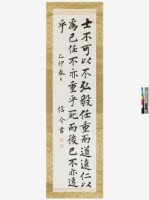 士不可以不弘毅任重而道遠仁以
為己任不亦重乎死而後已不亦遠
乎
乙卯春日
信介書